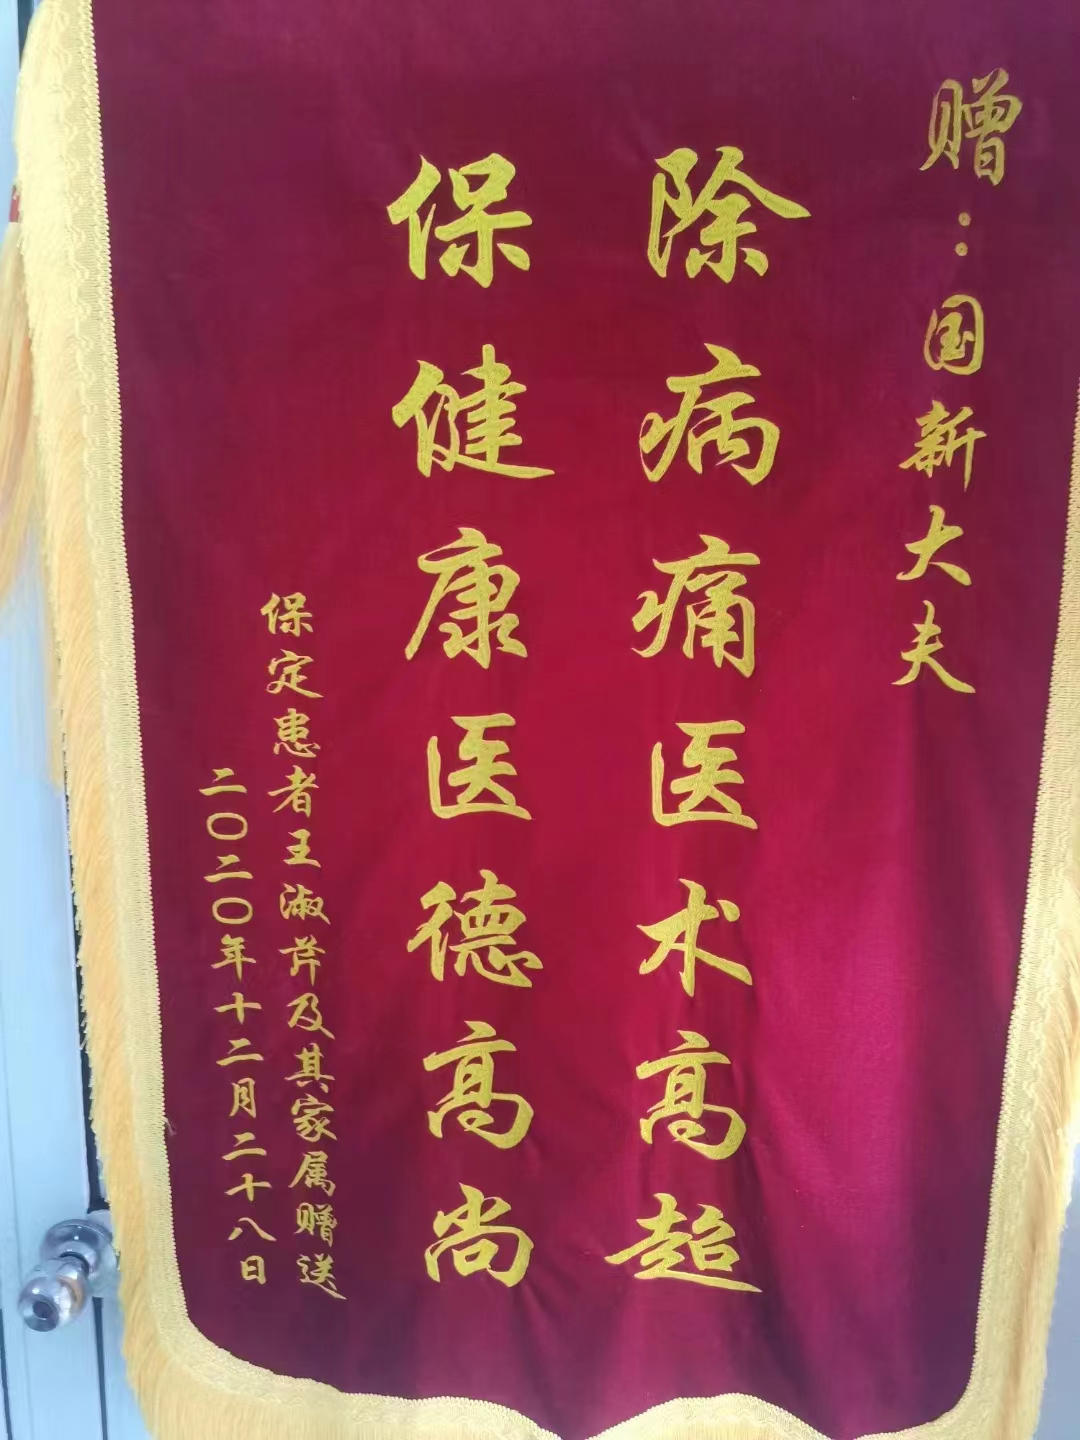 赠：国新大夫
除病痛医术高超
保健康医德高尚
保定患者王淑芹及其家属赠送
二〇二〇年十二月二十八日